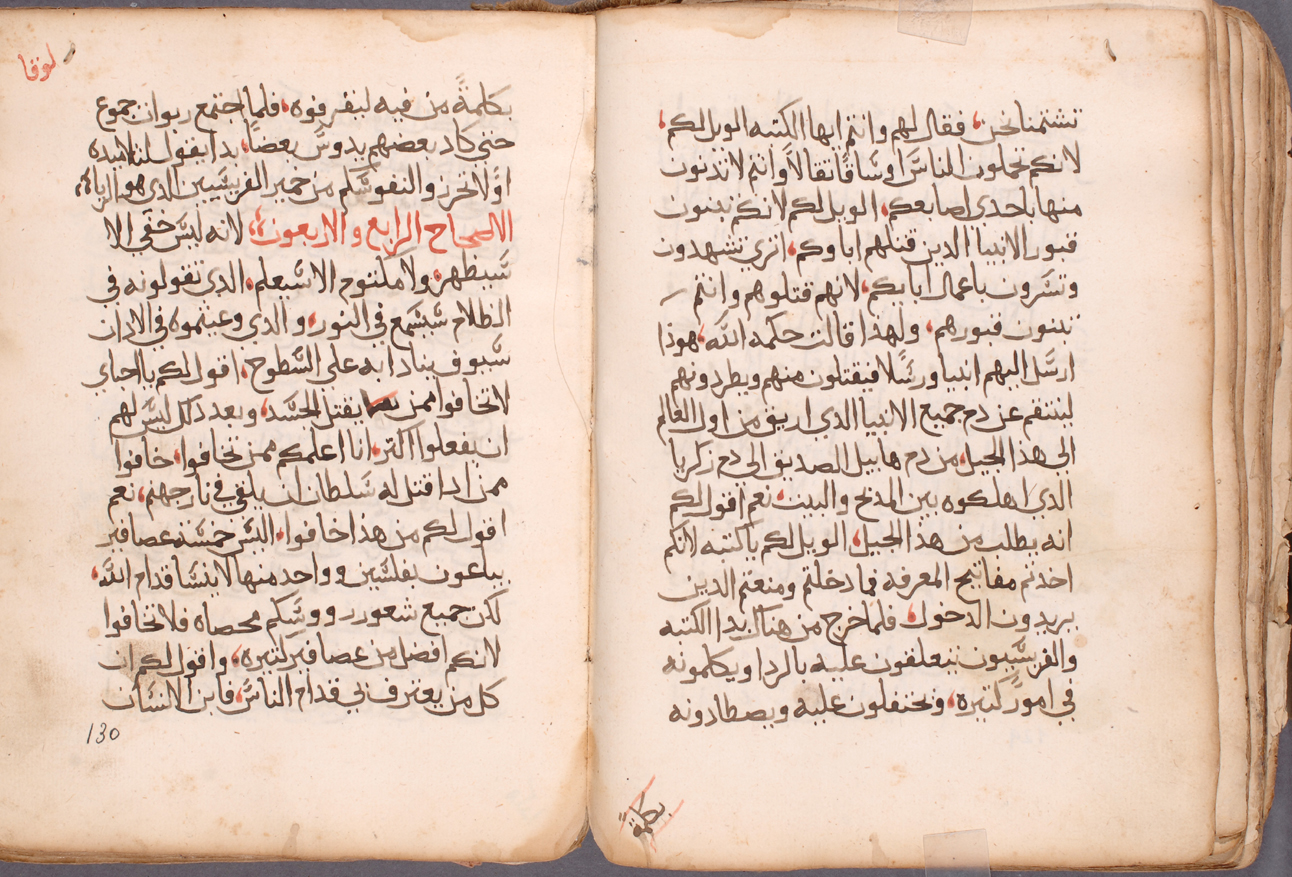 تشتمنا نحن، فقال لهم وانتم ايها الكتبه الويل لكم،
لانكم تحملون الناس اوساقًا تقالاً وانتم لا تدنون
منها باحدي اصابعكم، الويل لكم لانكم تبنون
قبور الانبيا الدين قتلهم اباوكم، اتري تشهدون
وتسرون باعمال ابايكم، لانهم قتلوهم وانتم
تبنون قبورهم، ولهدا قالت حكمه الله، هوذا
ارسل اليهم انبيا ورسلا فيقتلون منهم ويطردونهم
لينتقم عن دم جميع الانبيا الدي اريق من اول العالم
الي هذا الجيل، من دم هابيل الصديق الي دم زكريا
الدي اهلكوه بين المدبح والبيت، نعم اقول لكم
انه يطلب من هدا الجيل، الويل لكم ياكتبه لانكم
اخدتم مفاتيح المعرفه فما دخلتم ومنعتم الدين
يريدون الدخول، فلما خرج من هناك بدا الكتبه
والفريسيون يتعلقون عليه بالردا ويكلمونه
في امور كتيره، ويحتفلون عليه ويصطادونه
بكلمةً
لوقا
بكلمةً من فيه ليقرفوه، فلما اجتمع ربوات جموع
حتي كاد بعضهم يدوس بعضا، بدا يقول لتلاميده
اوّلا تحرز والنفوسكم من خمير الفريسيين الدي هو الريا،
الاصحاح الرابع والاربعون، لانه ليس خفي الا
سيظهر، ولا مكتوم الا سيعلم، الدي تقولونه في
الظلام سيسمع في النور، والدي وعيتموه في الادان
سوف ينادا به علي السطوح، اقول لكم يا احباي
لا تخافوا ممن يقتل الجسد، وبعد دلك ليس لهم
ان يفعلوا اكتر، انا اعلمكم ممن تخافوا، خافوا
ممن ادا قتل له سلطان ان يلقي في نار جهنم، نعم
اقول لكم من هذا خافوا، اليس خمسة عصافير
يباعون بفلسين وواحد منها لا ينسا قدام الله،
لكن جميع شعور رووسكم محصاه فلا تخافوا
لانكم افضل من عصافير كتيره، واقول لكم ان
كل من يعترف بي قدام الناس، فابن الانسان
130